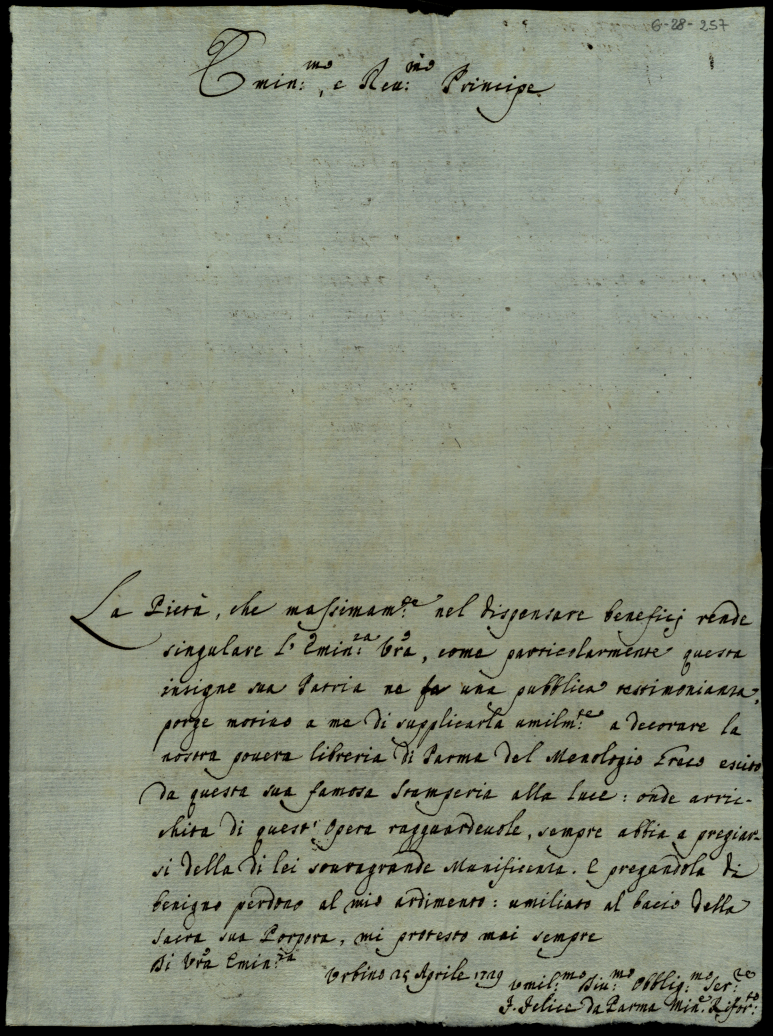 G-28-257
Emin:mo, e Reu:mo Principe.
La Pietà, che massimam:te nel dispensare beneficj rende
singulare l'Emin:za Vrã, come particolarmente questa
insigne sua Patria ne fa una pubblica testimonianza,
porge motivo a me di supplicarla umilm:te a decorare la
nostra pouera libreria di Parma del Menologio Greco escito
da questa sua famosa Stamperia alla luce: onde arric-
chita di quest'Opera ragguardeuole, sempre abbia a pregiar-
si della di lei souragrande Munificenza. E pregandola di
benigno perdono al mio ardimento: umiliato al bacio della
sacra sua Porpora, mi protesto mai sempre
Di Vrã Emin:za
Urbino 25 Aprile 1729
Umil:mo Diu:mo Obblig:mo Ser:re
F. Felice da Parma Min:e Rifor:to